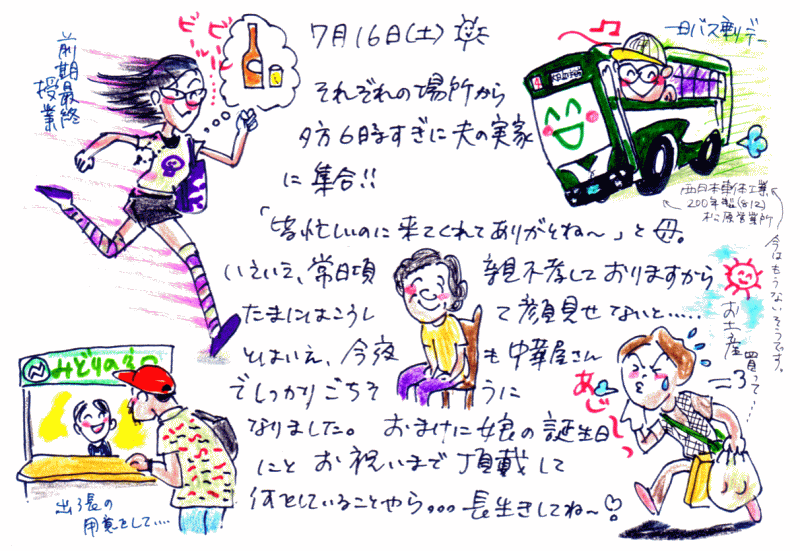 7月16日(土)
それぞれの場所から
夕方6時すぎに夫の実家
に集合!!
「皆忙しいのに来てくれてありがとね〜」と母。
いえいえ、常日頃 親不孝しておりますから
たまにはこうし て顔見せないと……
とはいえ、今夜 も中華屋さん
でしっかりごちそ うに
なりました。おまけに娘の誕生日
にとお祝いまで頂戴して
何をしていることやら。。。長生きしてね〜♡
前期最終
授業
ビールビール
一日バス乗りデー
西日本車体工業
200年製(812)
松原営業所
今はもうないそうです。
お土産
買って…
あぢーっ
みどりの窓口
出張の
用意をして….